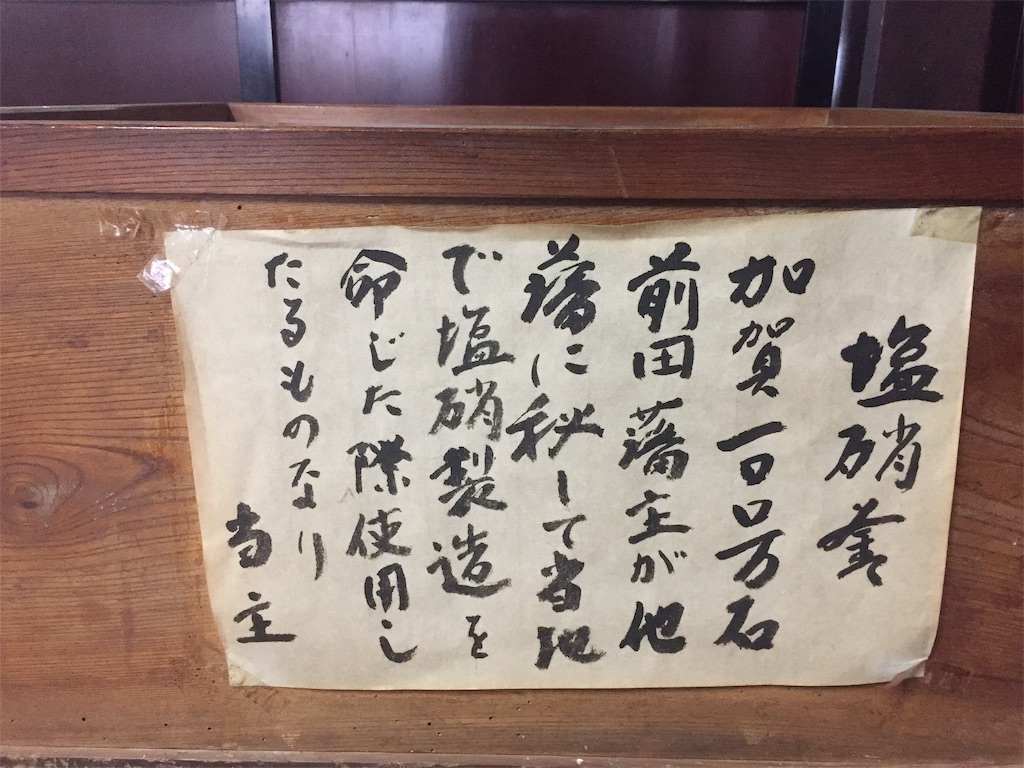 塩硝釜
加賀一〇〇万石
前田藩主が他
藩に秘して当地
で塩硝製造を
命じた際使用し
たるものなり
当主